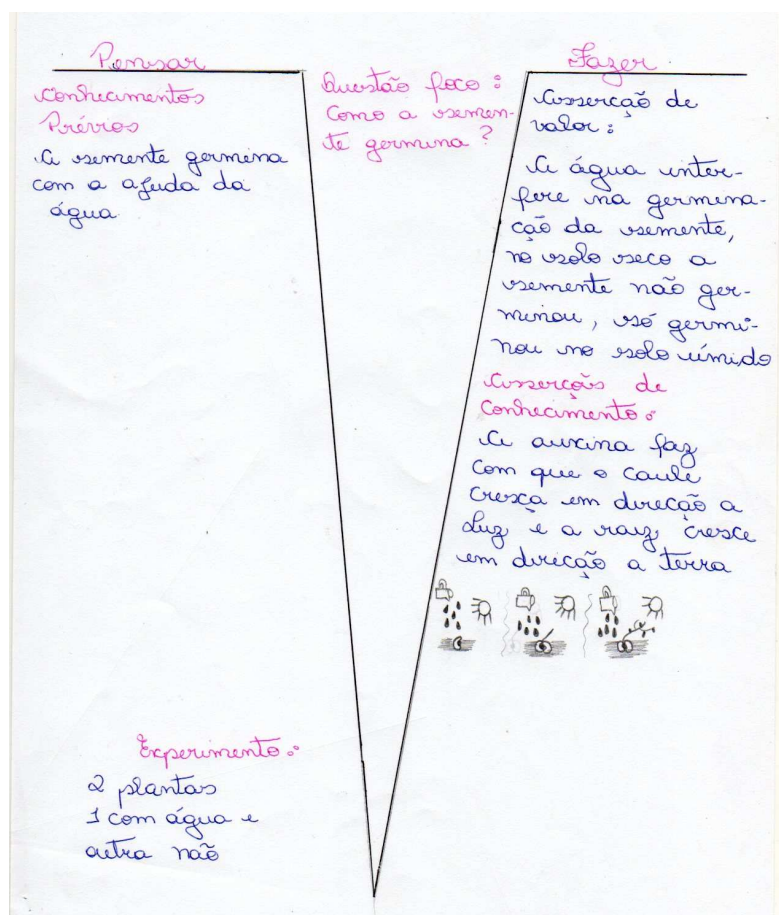 Pensar
Conhecimentos
Prévios
A semente germina
com a ajuda da
água
Questão foco:
Como a semen-
te germina?
Fazer
Asserção de
valor:
A água inter-
fere na germina-
ção da semente,
no solo seco a
semente não ger-
minou, só germi-
nou no solo úmido
Asserções de
Conhecimento:
A auxina faz
com que o caule
cresça em direção a
Luz e a raiz cresce
em direção a terra
Experimento:
2 plantas
1 com água e
outra não